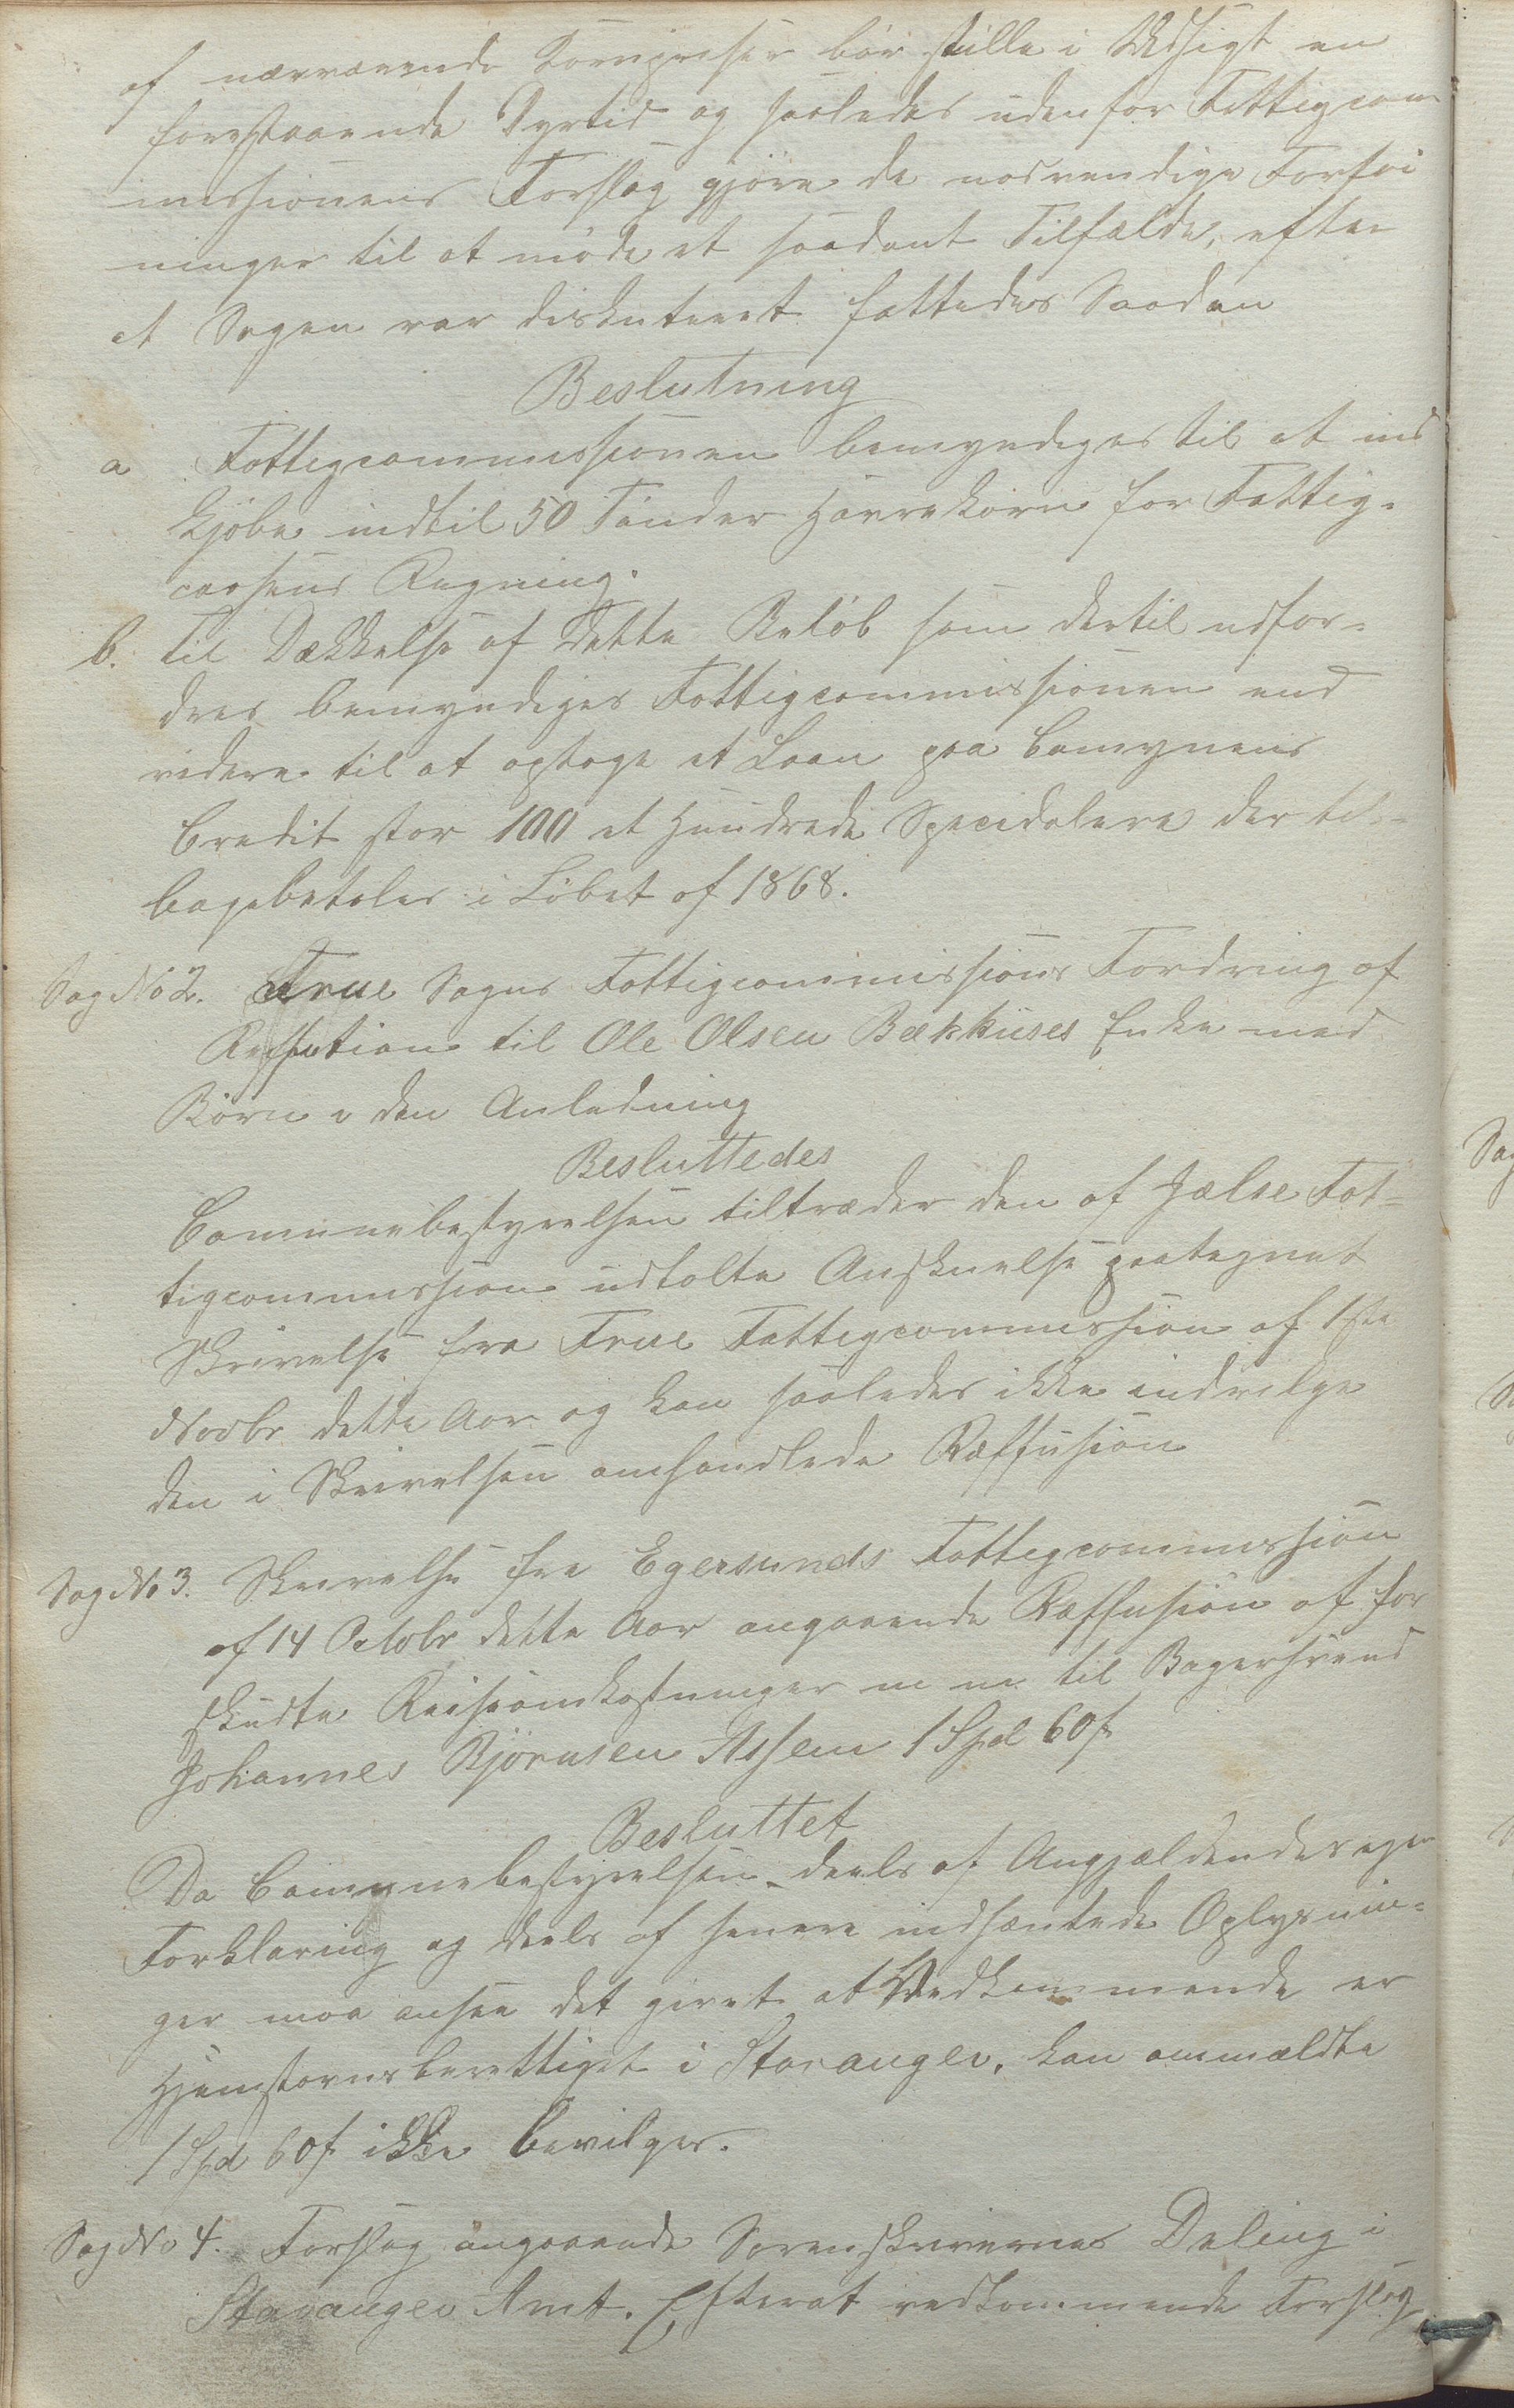 af nærværende Kornpriser bör stille i Udsigt en
forestaaende Dyrtid og saaledes udenfor Fattigcom
missionens Forslag gjöre de nødvendige Forföi
ninger til at møde et saadant Tilfælde, efter
at Sagen var diskuteret fattedes Saadan
Beslutning
a Fattigcommissionen bemyndiges til at ind
kjöbe indtil 50 Tønder Havrekorn for Fattig-
cassens Regning.
b. Til Dækkelse af dette Beløb som dertil udfor-
dres bemyndiges Fattigcommissionen end
videre til at optage et Laan paa Comynens
Credit stor 100 et Hundrede Specidalere der til-
bagebetales i Löbet af 1868.
Sag No 2. Frue Sogns Fattigcommissions Fordring af
Reffution til Ole Olsen Bækhuses Enke med
Börn i den Anledning
Besluttedes
Comunebestyrelsen tiltræder den af Jælse Fat-
tigcommission udtalte Anskuelse paategnet
Skrivelse fra Frue Fattigcommission af 1ste
Novbr dette Aar og kan saaledes ikke indvilge
den i Skrivelsen omhandlede Ræffusion
Sag No 3. Skrivelse fra Egersunds Fattigcommission
af 14 Octobr dette Aar angaaende Ræffusion af for
skudte Reiseomkostninger m m til Bagersvend
Johannes Björnsen Assen 1 Spd 60 s
Besluttet
Da Comynebestyrelsen deels af Angjældendes egen
Forklaring og deels af senere indhæntede Oplysnin-
ger maa ansee det givet at Vedkommende er
Hjemstavnsberettiget i Stavanger, kan ommældte
1 Spd 60 s ikke bevilges.
Sag No 4. Forslag angaaende Sorenskrivernes Deling i
Stavanger Amt. Efterat vedkommende Forslag